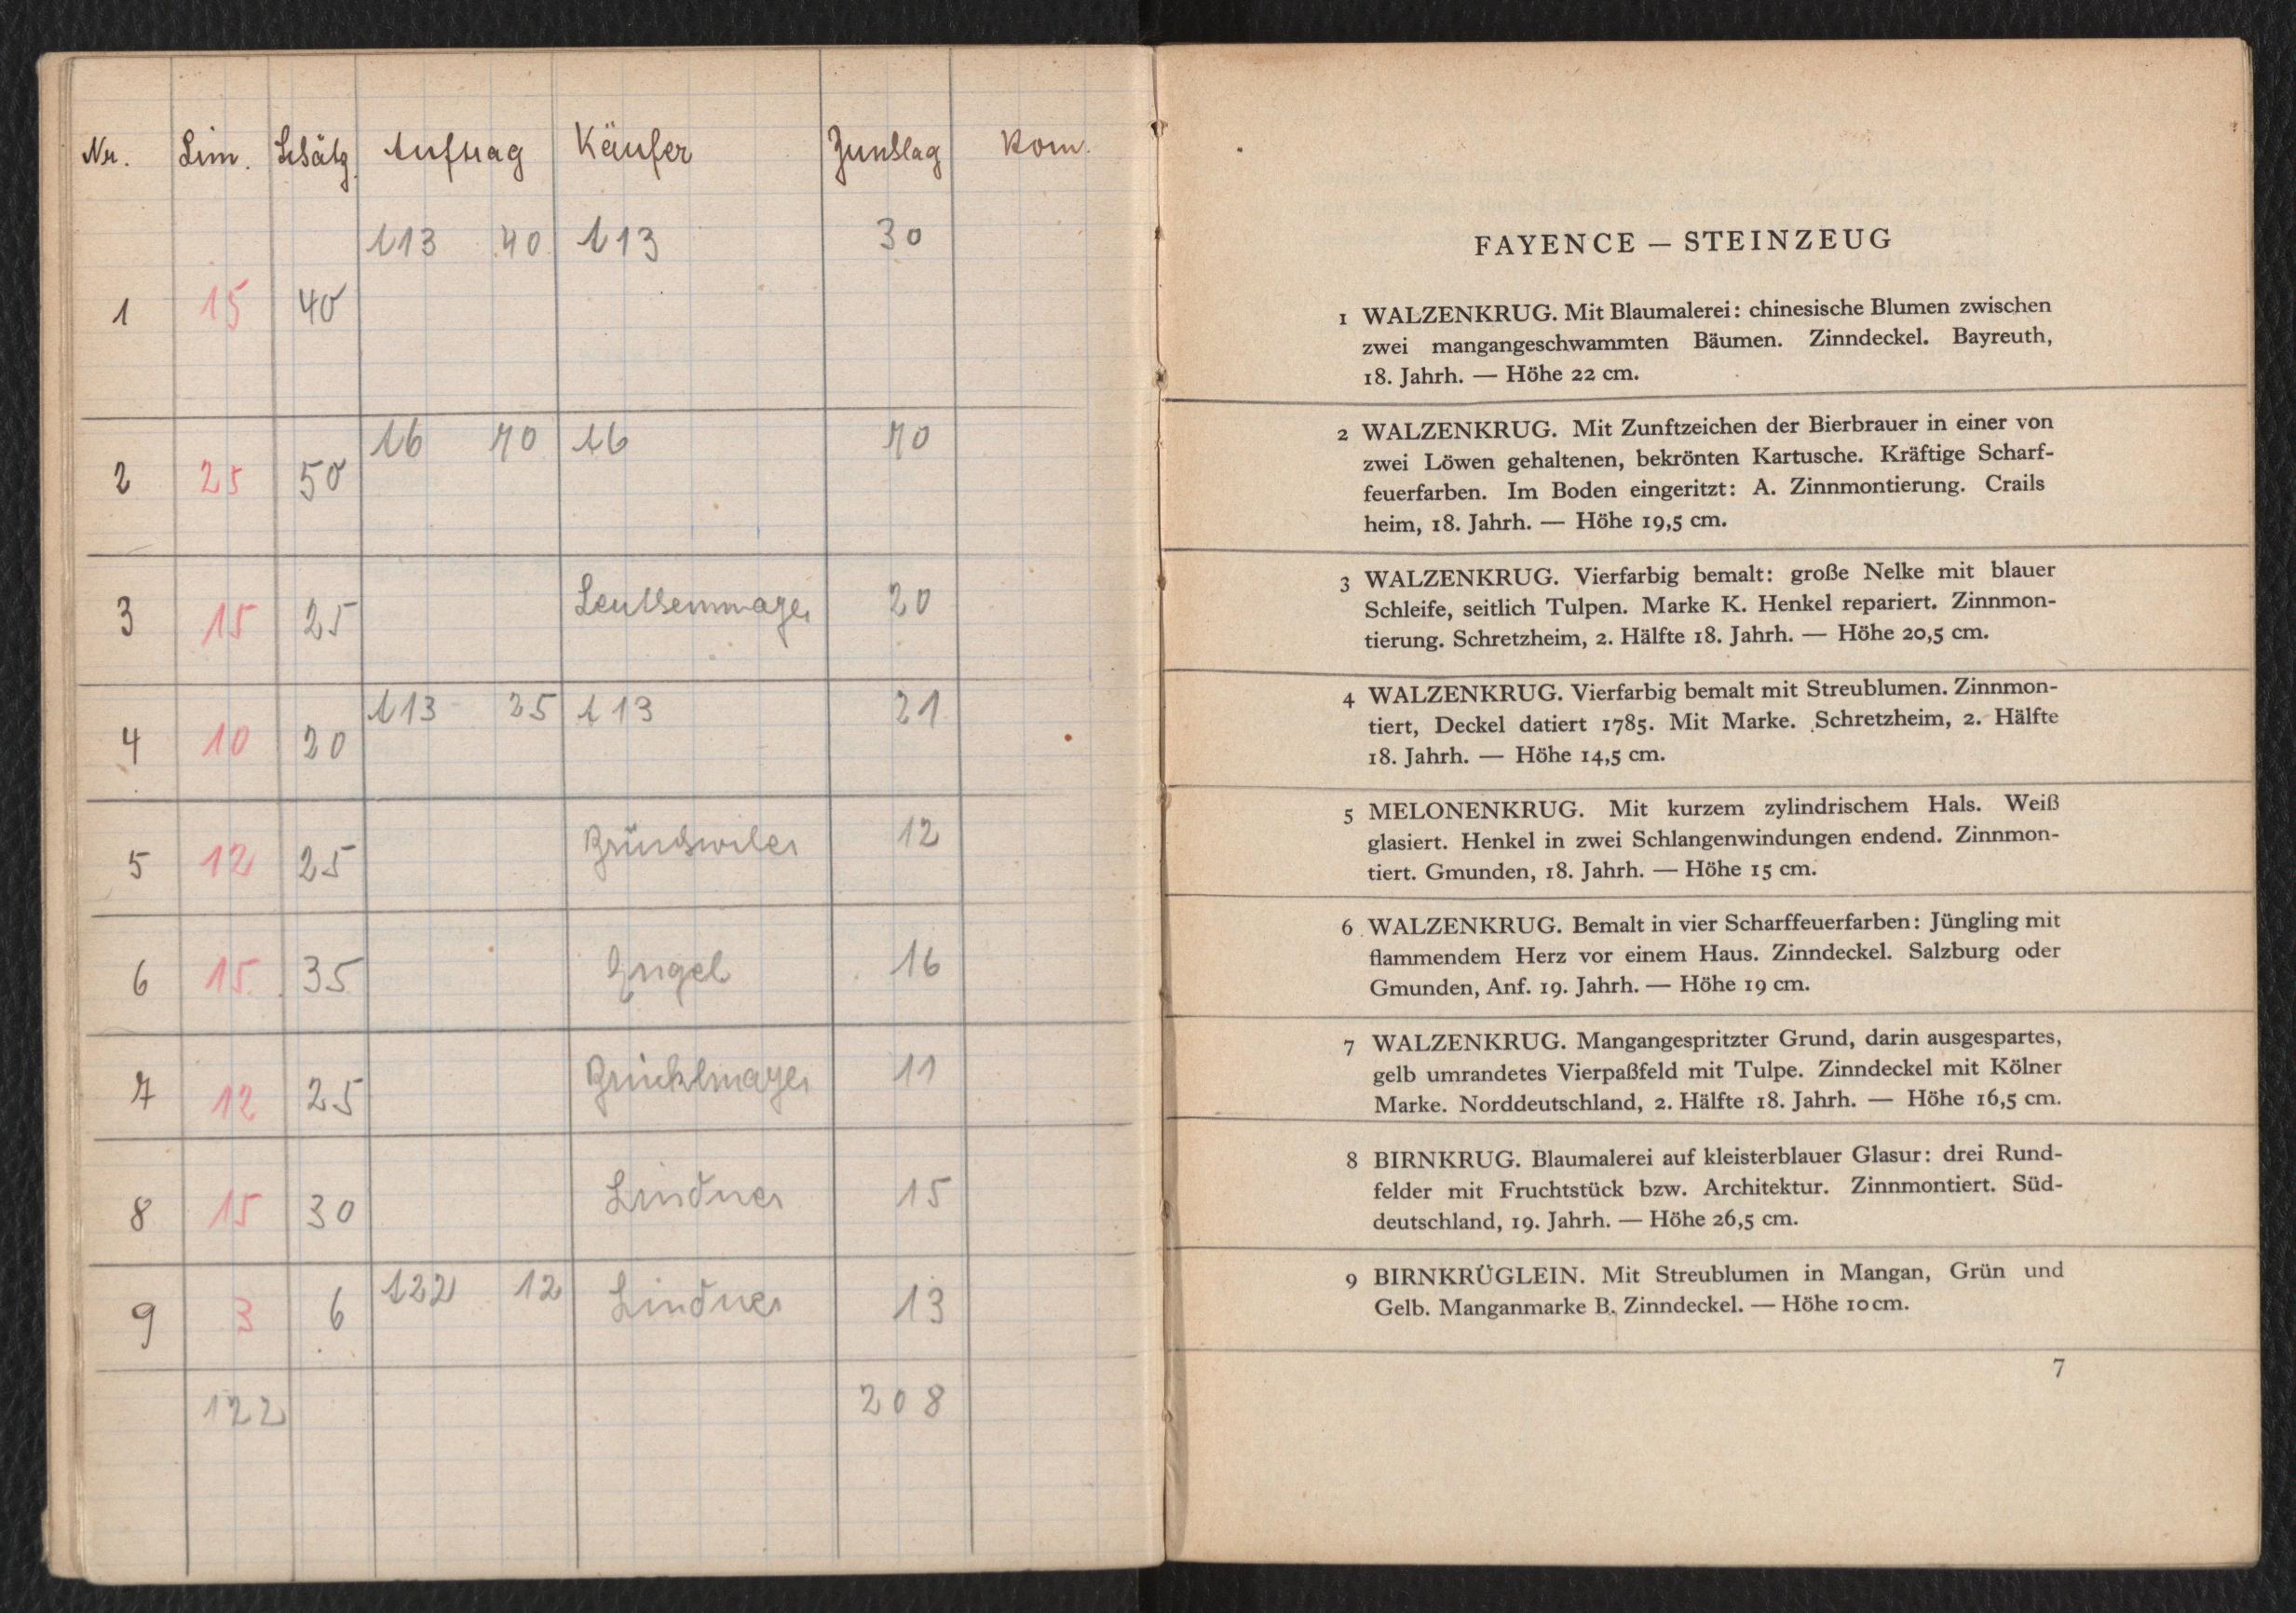 Nr. Lim. Schätz. Auftrag Käufer Zuschlag Kom.
A13 40 A13 30
1 15 40
A6 70 A6 70
2 25 50
3 15 25 20
A13 25 A13 21
4 10 20
5 12 25 12
6 15 35 Engel 16
7 12 25 Brücklmayer 11
8 15 30 Lindner 15
A22 12
9 3 6 Lindner 13
122 208
FAYENCE – STEINZEUG
1 WALZENKRUG. Mit Blaumalerei: chinesische Blumen zwischen
zwei mangangeschwammten Bäumen. Zinndeckel. Bayreuth,
18. Jahrh. — Höhe 22 cm.
2 WALZENKRUG. Mit Zunftzeichen der Bierbrauer in einer von
zwei Löwen gehaltenen, bekrönten Kartusche. Kräftige Scharf-
feuerfarben. Im Boden eingeritzt: A. Zinnmontierung. Crails
heim, 18. Jahrh. — Höhe 19,5 cm.
3 WALZENKRUG. Vierfarbig bemalt: große Nelke mit blauer
Schleife, seitlich Tulpen. Marke K. Henkel repariert. Zinnmon-
tierung. Schretzheim, 2. Hälfte 18. Jahrh. — Höhe 20,5 cm.
4 WALZENKRUG. Vierfarbig bemalt mit Streublumen. Zinnmon-
tiert, Deckel datiert 1785. Mit Marke. Schretzheim, 2. Hälfte
18. Jahrh. — Höhe 14,5 cm.
5 MELONENKRUG. Mit kurzem zylindrischem Hals. Weiß
glasiert. Henkel in zwei Schlangenwindungen endend. Zinnmon-
tiert. Gmunden, 18. Jahrh. — Höhe 15 cm.
6 WALZENKRUG. Bemalt in vier Scharffeuerfarben: Jüngling mit
flammendem Herz vor einem Haus. Zinndeckel. Salzburg oder
Gmunden, Anf. 19. Jahrh. — Höhe 19 cm.
7 WALZENKRUG. Mangangespritzter Grund, darin ausgespartes,
gelb umrandetes Vierpaßfeld mit Tulpe. Zinndeckel mit Kölner
Marke. Norddeutschland, 2. Hälfte 18. Jahrh. — Höhe 16,5 cm.
8 BIRNKRUG. Blaumalerei auf kleisterblauer Glasur: drei Rund-
felder mit Fruchtstück bzw. Architektur. Zinnmontiert. Süd-
deutschland, 19. Jahrh. — Höhe 26,5 cm.
9 BIRNKRÜGLEIN. Mit Streublumen in Mangan, Grün und
Gelb. Manganmarke B. Zinndeckel. — Höhe 10 cm.
7